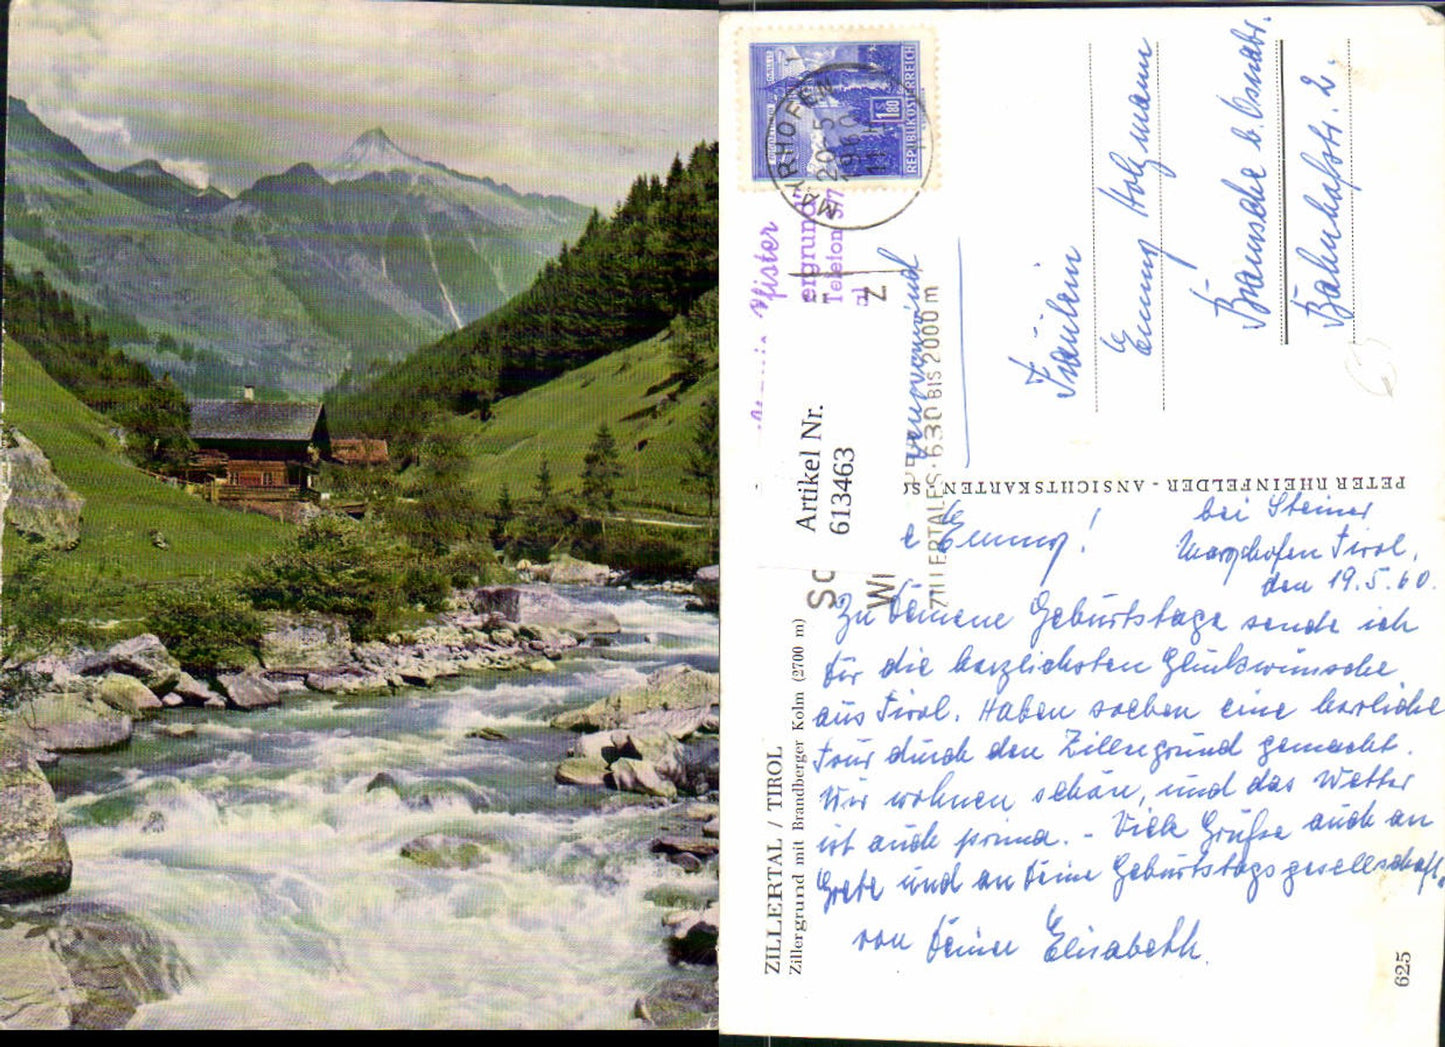 REPUBLIK ÖSTERREICH
S 1.80
MAYRHOFEN
20.5
1960
11
Pfister
ergrund"
Telefon
Artikel Nr.
613463
ZILLERTALES·630 BIS 2000 m
Fräulein
Emmy Holzmann
Bramsche b. Osnabr.
Bahnhofstr. 2.
PETER RHEINFELDER - ANSICHTSKARTEN
bei Steiner
Mayrhofen Tirol,
den 19.5.60.
e Emmy!
Zu Deinene Geburtstage sende ich
Dir die herzlichsten Glückwünsche
aus Tirol. Haben soeben eine herrliche
Tour durch den Zillergrund gemacht.
Wir wohnen schön, und das Wetter
ist auch prima. - Viele Grüße auch an
Grete und an Deine Geburtstagsgesellschaft,
von Deiner Elisabeth.
ZILLERTAL / TIROL
Zillergrund mit Brandberger Kolm (2700 m)
625